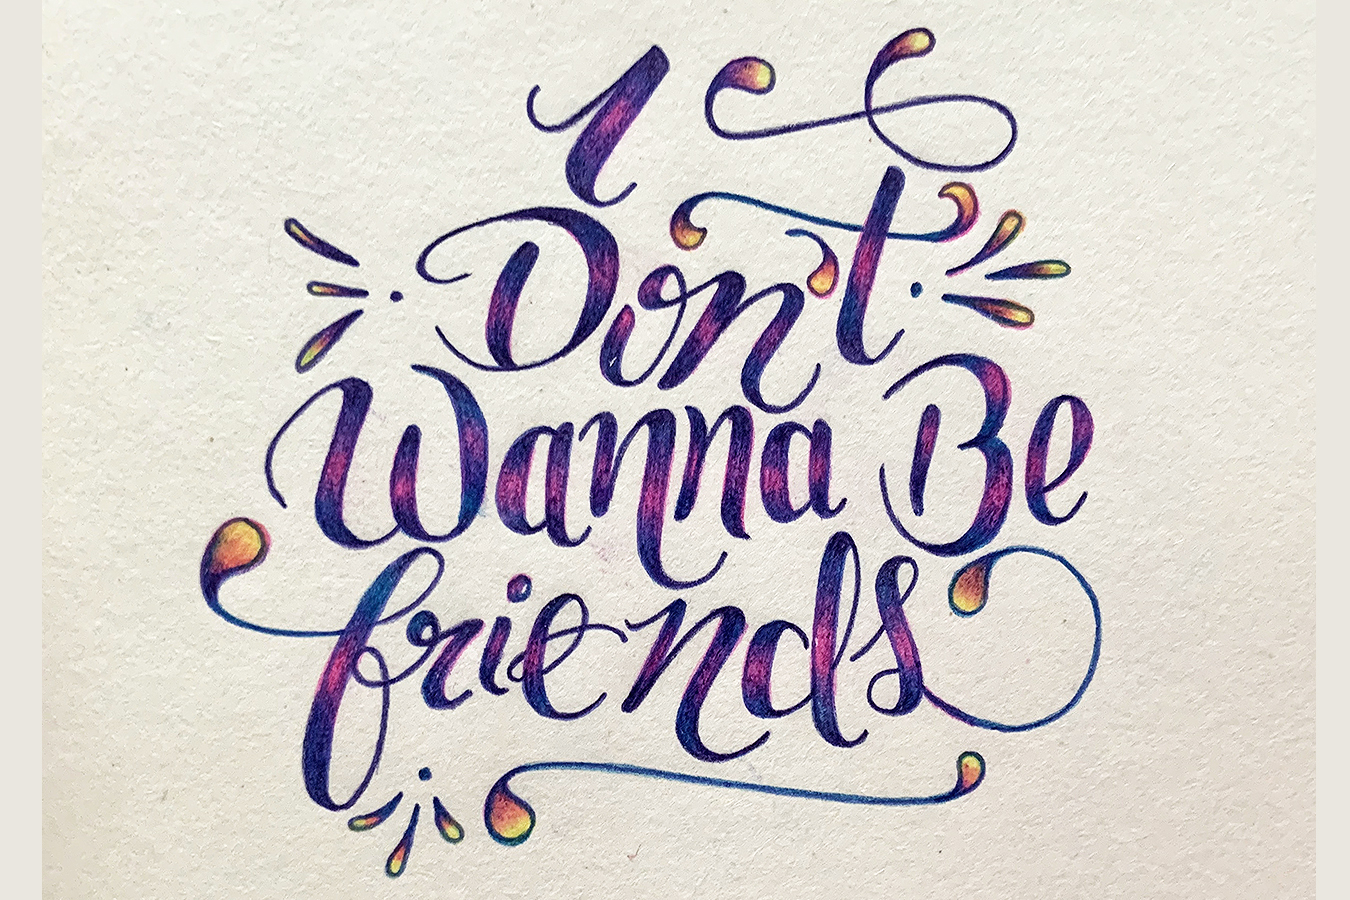 I
Don't
Wanna Be
friends